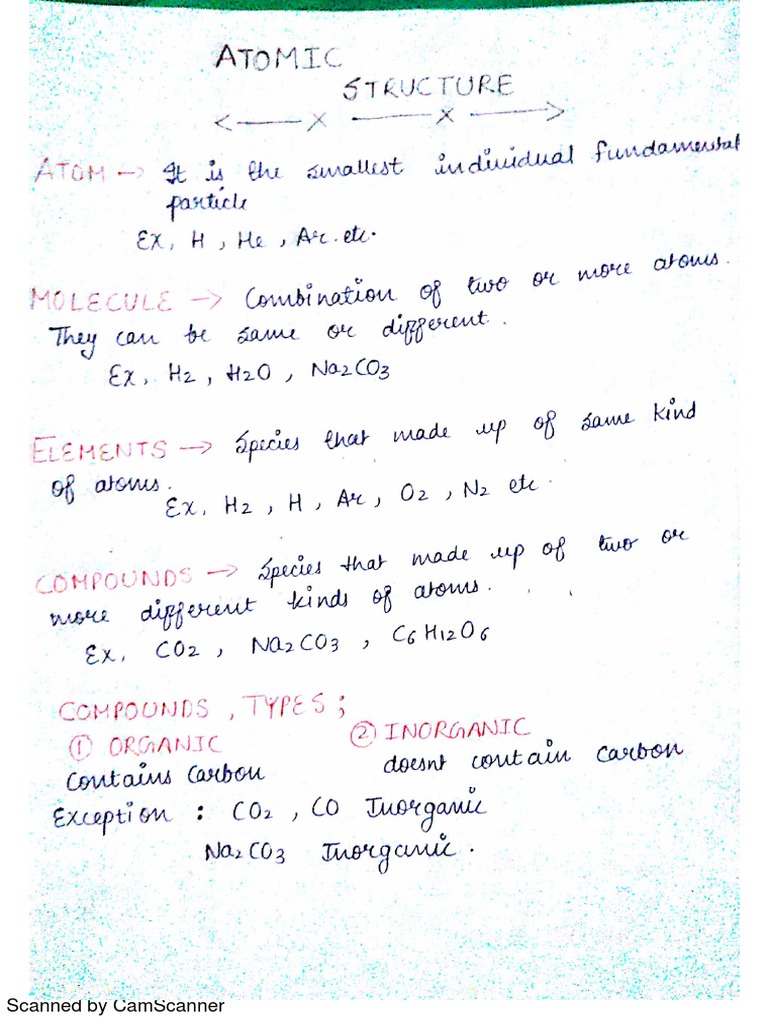 ATOMIC
STRUCTURE
ATOM → It is the smallest individual fundamental
particle
Ex, H , He , Ar. etc.
MOLECULE → Combination of two or more atoms.
They can be same or different.
Ex, H2 , H2O , Na2CO3
ELEMENTS → Species that made up of same kind
of atoms.
Ex, H2 , H , Ar , O2 , N2 etc.
COMPOUNDS → Species that made up of two or
more different kinds of atoms.
Ex, CO2 , Na2CO3 , C6H12O6
COMPOUNDS , TYPES ;
① ORGANIC ② INORGANIC
Contains Carbon doesnt contain carbon
Exception : CO2 , CO Inorganic
Na2CO3 Inorganic.
Scanned by CamScanner